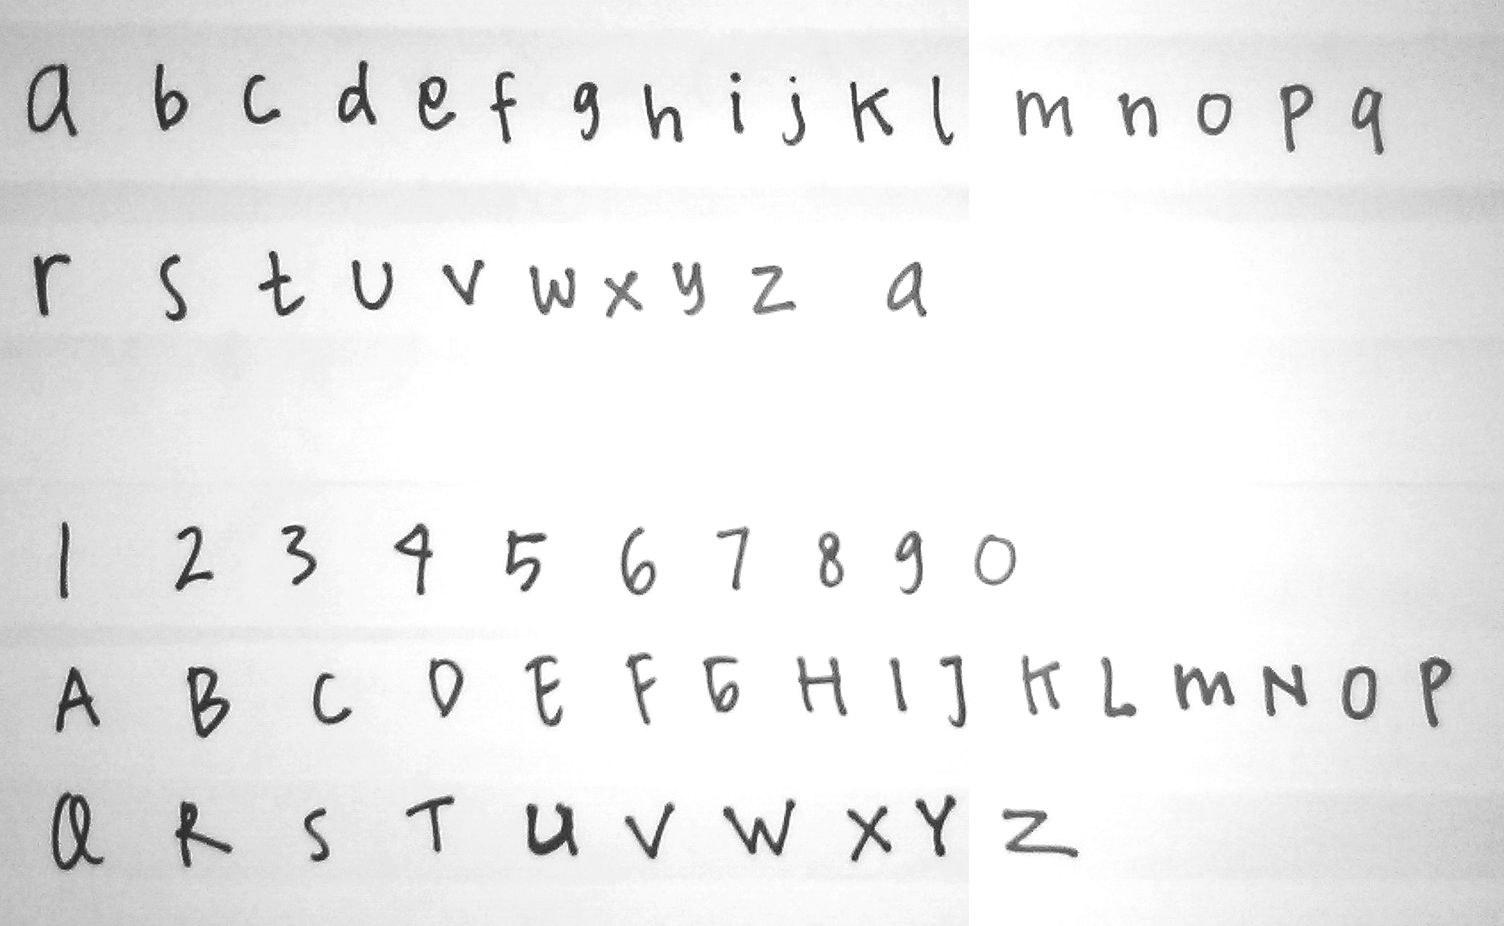 a b c d e f g h i j k l m n o p q
r s t u v w x y z a
1 2 3 4 5 6 7 8 9 0
A B C D E F G H I J K L M N O P
Q R S T U V W X Y Z